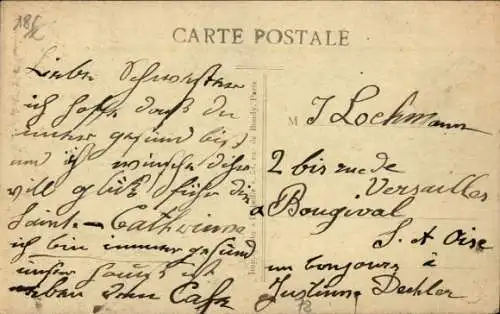 CARTE POSTALE
Liebe Schwester
ich hoffe daß du
immer gesund bist
und ich wünsche dir
viel glück für die
Sainte-Catherine
ich bin immer gesund
unser
neben dem Cafe
M J Lockmann
2 bis rue de
Versailles
a Bougival
S. et Oise
un bonjours à
Justinne Dechler